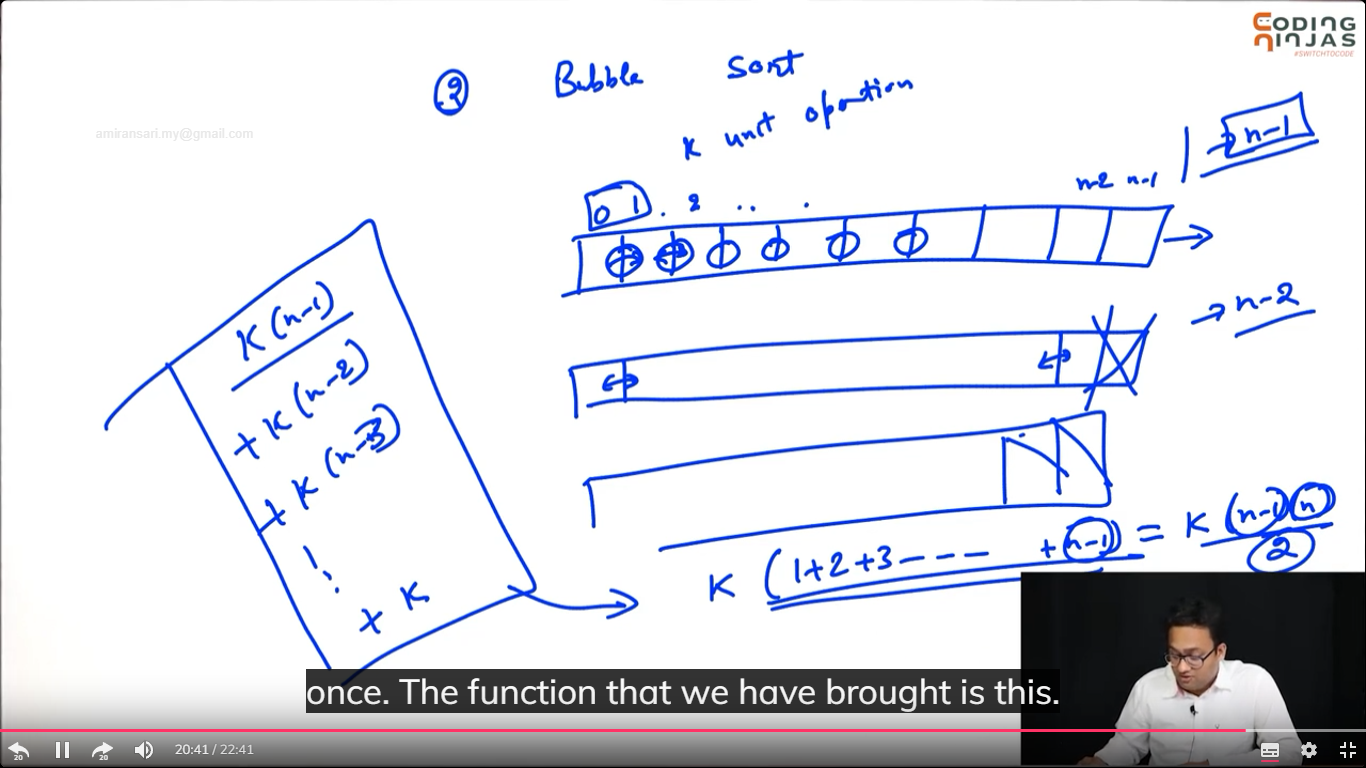 CODING
NINJAS
#SWITCHTOCODE
Bubble Sort
amiransari.my@gmail.com
K unit opertion
→ n-1
0 1 . 2 .. . n-2 n-1
→ n-2
K(n-1)
+ K(n-2)
+ K(n-3)
+ K
K (1+2+3----- +(n-1)) = K (n-1)(n)
2
once. The function that we have brought is this.
20 20 20:41 / 22:41